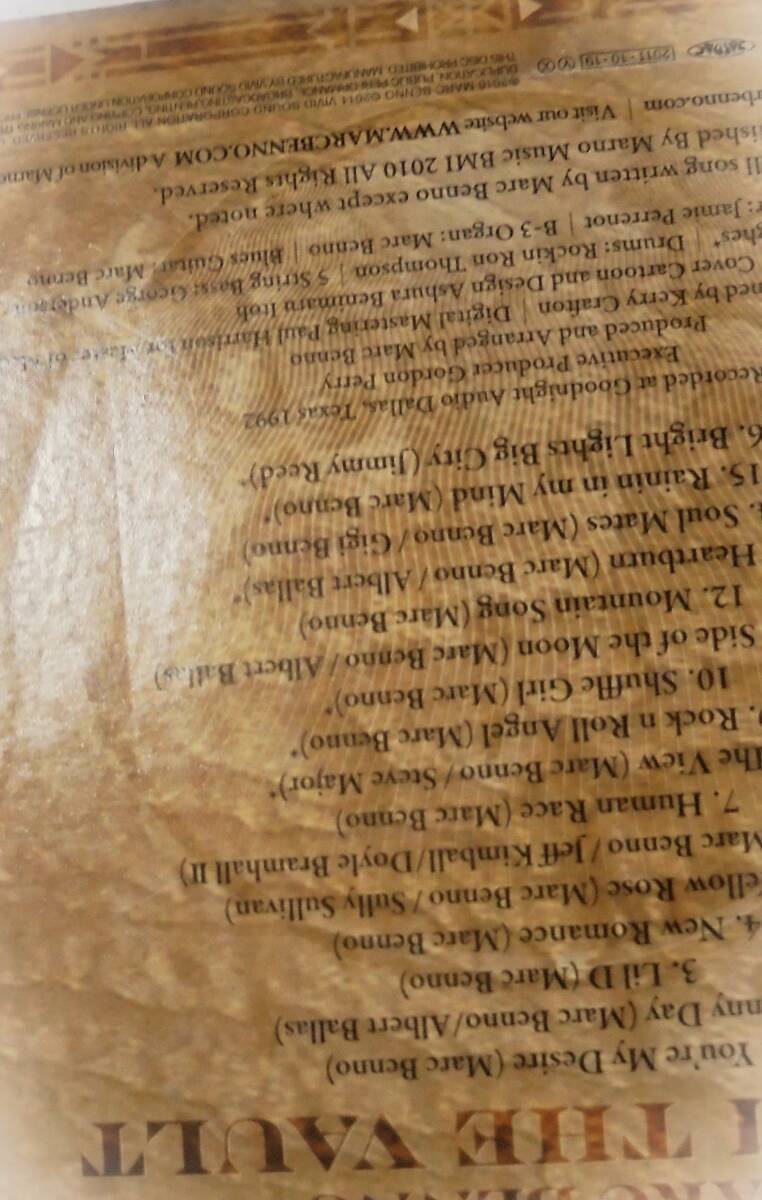 ARC BENNO
THE VAULT
You're My Desire (Marc Benno)
nny Day (Marc Benno/Albert Ballas)
3. Lil D (Marc Benno)
4. New Romance (Marc Benno)
ellow Rose (Marc Benno / Sully Sullivan)
Marc Benno / Jeff Kimball/Doyle Bramhall II)
7. Human Race (Marc Benno)
The View (Marc Benno / Steve Major)*
9. Rock n Roll Angel (Marc Benno)*
10. Shuffle Girl (Marc Benno)*
Side of the Moon (Marc Benno / Albert Ballas)
12. Mountain Song (Marc Benno)
Heartburn (Marc Benno / Albert Ballas)*
. Soul Mates (Marc Benno / Gigi Benno)
15. Rainin in my Mind (Marc Benno)*
6. Bright Lights Big City (Jimmy Reed)*
Recorded at Goodnight Audio Dallas, Texas 1992
Executive Producer Gordon Perry
Produced and Arranged by Marc Benno
ned by Kerry Crafton | Digital Mastering Paul Harrison for
Cover Cartoon and Design Ashura Benimaru Itoh
ghes* | Drums: Rockin Ron Thompson | 5 String Bass: George Anderson
r: Jamie Perrenot | B-3 Organ: Marc Benno | Blues Guitar: Marc Benno
ll song written by Marc Benno except where noted.
ished By Marno Music BMI 2010 All Rights Reserved.
rbenno.com | Visit our website WWW.MARCBENNO.COM A division of Marno
℗2010 MARC BENNO ©2011 VIVID SOUND CORPORATION ALL RIGHTS RESERVED.
DUPLICATION, PUBLIC PERFORMANCE, BROADCASTING, RENTING, COPYING AND
THIS DISC PROHIBITED. MANUFACTURED BY VIVID SOUND CORPORATION UNDER LICENSE
2011・10・19